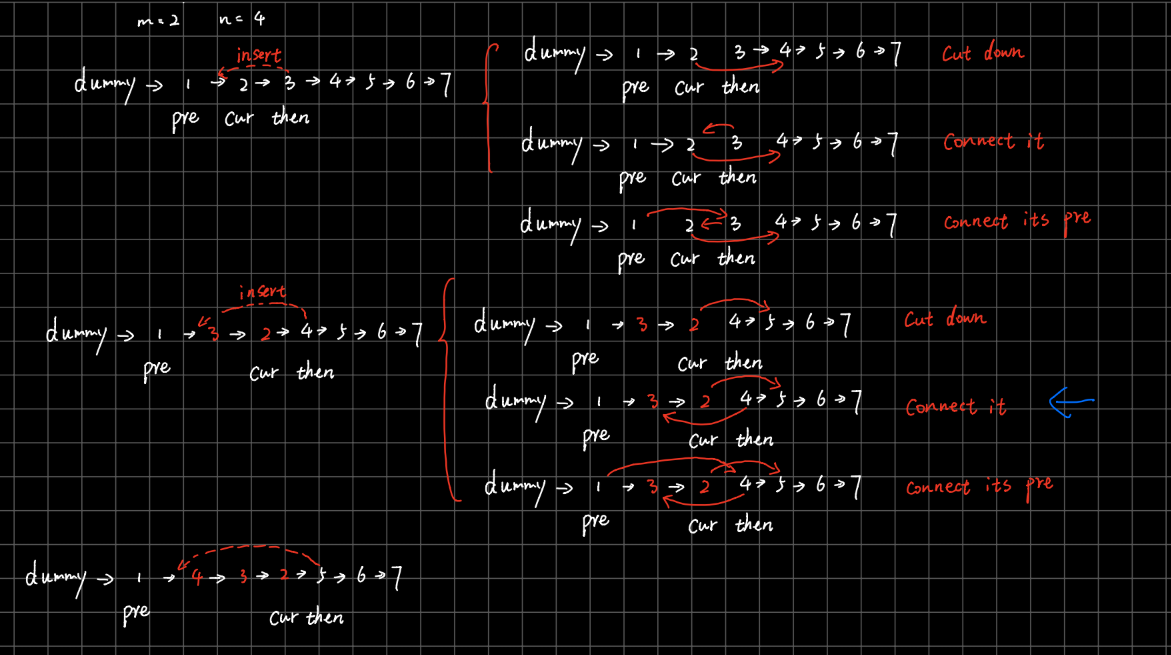 m = 2 n = 4
insert
dummy → 1 → 2 → 3 → 4 → 5 → 6 → 7
pre cur then
dummy → 1 → 2 3 → 4 → 5 → 6 → 7 Cut down
pre cur then
dummy → 1 → 2 3 4 → 5 → 6 → 7 Connect it
pre cur then
dummy → 1 2 3 4 → 5 → 6 → 7 Connect its pre
pre cur then
insert
dummy → 1 → 3 → 2 → 4 → 5 → 6 → 7
pre cur then
dummy → 1 → 3 → 2 4 → 5 → 6 → 7 Cut down
pre cur then
dummy → 1 → 3 → 2 4 → 5 → 6 → 7 Connect it
pre cur then
dummy → 1 → 3 → 2 4 → 5 → 6 → 7 Connect its pre
pre cur then
dummy → 1 → 4 → 3 → 2 → 5 → 6 → 7
pre cur then